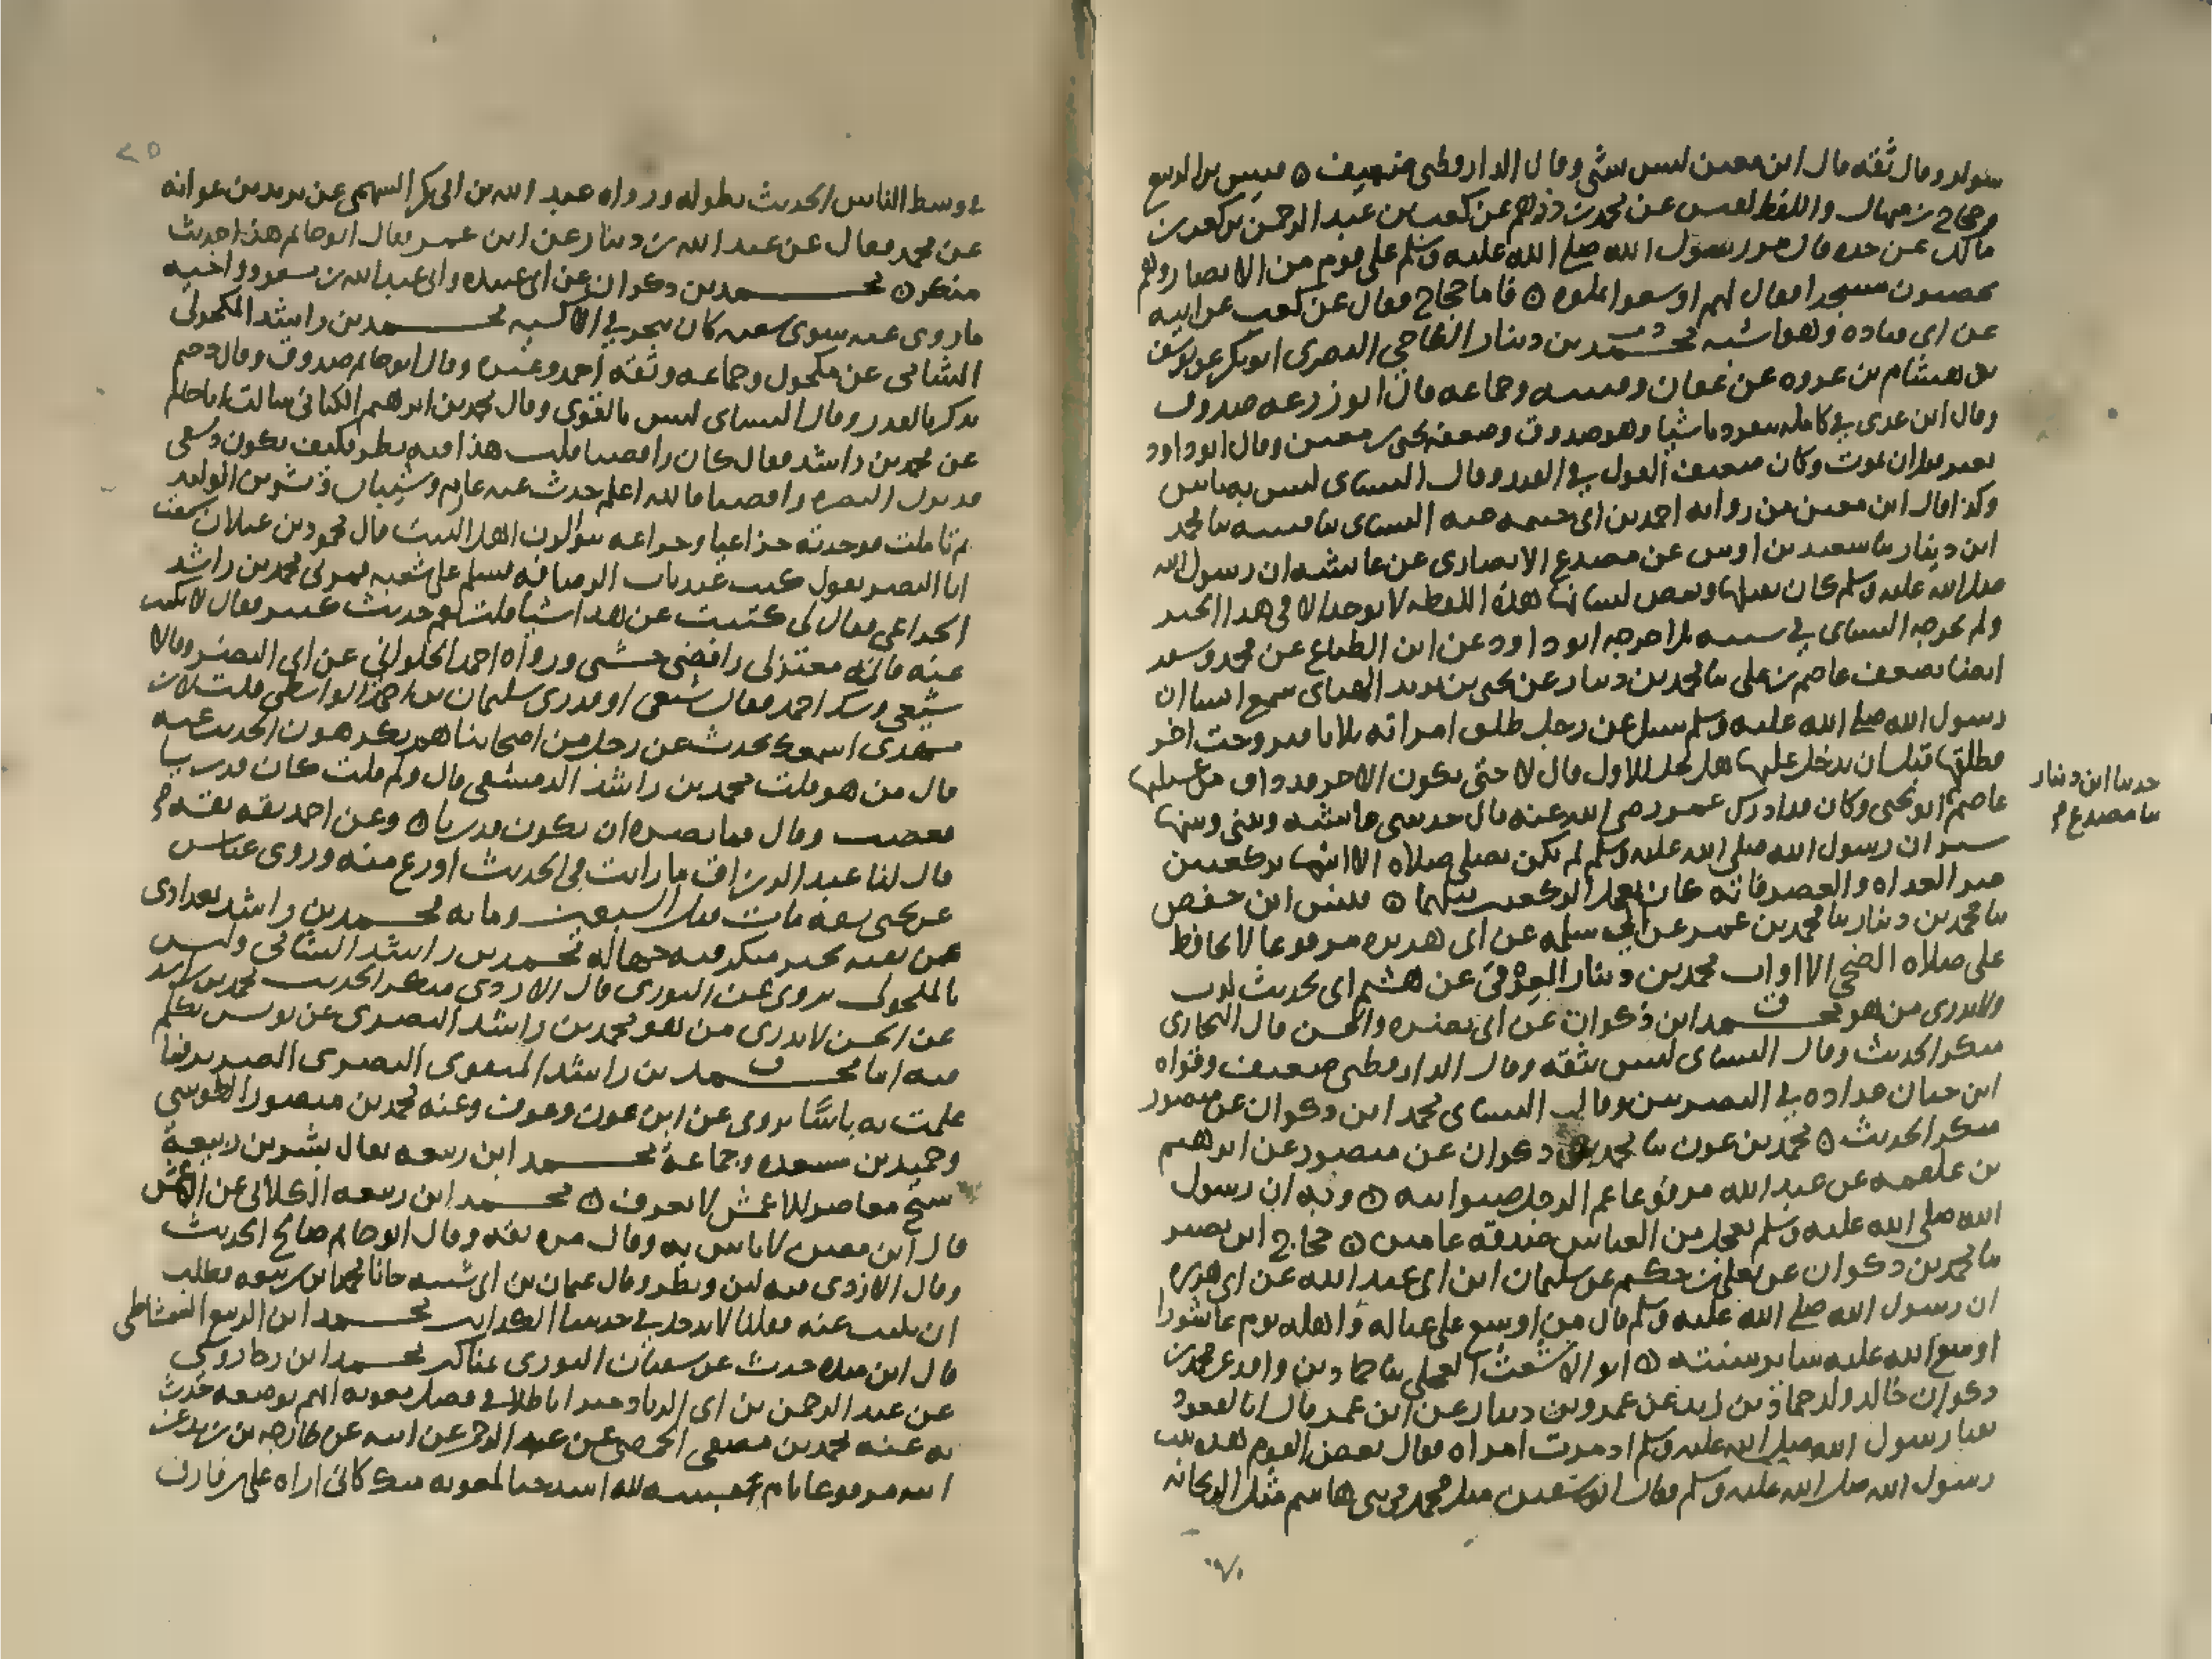 وقال ثقة قال ابن معين ليس بشي وقال الدارقطني ضعيف ۞ قيس بن الربيع
وحجاج بن منهال واللفظ لقيس عن محمد بن درهم عن كعب بن عبد الرحمن بن كعب بن
مالك عن جده قال مر رسول الله صلى الله عليه وسلم على قوم من الانصار وهم
مسجدا فقال لهم اوسعوا تملوه ۞ فاما حجاج فقال عن كعب عن ابيه
عن ابي قتاده وهو اشبه محمد بن دينار الطاحي البصري ابو بكر عن يونس
بن هشام بن عروه عن عفان وقتيبه وجماعه قال ابو زرعه صدوق
وقال ابن عدي في كامله ينفرد باشيا وهو صدوق وضعفه يحيى بن معين وقال ابو داود
تغير قبل ان يموت وكان ضعيف القول في القدر وقال النسائي ليس به باس
وكذا قال ابن معين من روايه احمد بن ابي خيثمه عنه النسائي نا قتيبه نا محمد
ابن دينار نا سعد بن اوس عن مصدع الانصاري عن عائشه ان رسول الله
صلى الله عليه وسلم كان يقبلها ويمص لسانها هذه اللفظه لا توجد الا في هذا الخبر
ولم يخرجه النسائي في سننه بل اخرجه ابو داود عن ابن الطباع عن محمد وسعد
ايضا يضعف عاصم بن علي نا محمد بن دينار عن يحيى بن يزيد الهنائي سمع انسا ان
رسول الله صلى الله عليه وسلم سئل عن رجل طلق امراته ثلاثا فتزوجت اخر
فطلقها قبل ان يدخل عليها هل تحل للاول قال لا حتى يكون الاخر قد ذاق من عسيلتها
عاصم ابو يحيى وكان قد ادرك عمر رضي الله عنه قال حدثتني عائشه وبيني وبينها
ستر ان رسول الله صلى الله عليه وسلم لم يكن يصلي صلاه الا اتبعها بركعتين
غير الغداه والعصر فانه كان يجعل الركعتين قبلهما ۞ قيس ابن حفص
نا محمد بن دينار نا محمد بن عمرو عن ابي سلمه عن ابي هريره مرفوعا لا يحافظ
على صلاه الضحى الا اواب محمد بن دينار العوقي عن هشيم اتى بحديث كذب
ولا يدرى من هو محمد ابن ذكوان عن ابي نضره والحسن قال البخاري
منكر الحديث وقال النسائي ليس بثقه وقال الدارقطني ضعيف وقواه
ابن حبان عداده في البصريين وقال النسائي محمد ابن ذكوان عن منصور
منكر الحديث ۞ محمد بن عون نا محمد بن ذكوان عن منصور عن ابرهيم
بن علقمه عن عبد الله مرفوعا عم الرجل صنو ابيه ۞ وبه ان رسول
الله صلى الله عليه وسلم تعجل من العباس صدقه عامين ۞ حجاج ابن نصير
نا محمد بن ذكوان عن يعلى بن حكيم عن سليمان ابن ابي عبد الله عن ابي هريره
ان رسول الله صلى الله عليه وسلم قال من اوسع على عياله واهله يوم عاشورا
اوسع الله عليه سائر سنته ۞ ابو الاشعث العجلي نا حماد بن واقد عن محمد بن
ذكوان خال ولد حماد بن زيد عن عمرو بن دينار عن ابن عمر قال انا لقعود
بفنا رسول الله صلى الله عليه وسلم اذ مرت امراه فقال بعض القوم هذه بنت
رسول الله صلى الله عليه وسلم فقال ابو سفين مثل محمد في بني هاشم مثل الريحانه
حدثنا ابن دينار
نا مصدع
٧٠
٢٥
في وسط الناس الحديث بطوله ورواه عبد الله بن ابي بكر السهمي عن يزيد بن عوانه
عن محمد فقال عن عبد الله بن دينار عن ابن عمر فقال ابو حاتم هذا حديث
منكر ۞ محمد بن ذكوان عن ابي عبيده وابي عبد الله بن مسعود واخيه
ما روى عنه سوى شعبه كان يتجر في الاكسيه محمد بن راشد المكحولي
الشامي عن مكحول وجماعه وثقه احمد وغيره وقال ابو حاتم صدوق وقال دحيم
يذكر بالقدر وقال النسائي ليس بالقوي وقال محمد بن ابرهيم الكناني سالت ابا حاتم
عن محمد بن راشد فقال كان رافضيا قلت هذا فيه نظر فكيف يكون دمشقي
قد نزل البصره رافضيا فالله اعلم حدث عنه عارم وشيبان وبشر بن الوليد
ثم تاملت فوجدته خزاعيا وخزاعه يوالون اهل البيت قال محمود بن غيلان سمعت
ابا النضر يقول كنت عند باب الرصافه فسلم علي شعبه فمر بي محمد بن راشد
الخزاعي فقال لي كتبت عن هذا شيا قلت نعم حديث عمر فقال لا تكتب
عنه فانه معتزلي رافضي خشبي ورواه احمد الحلواني عن ابي النضر وقال لا
شيعي وشك احمد فقال شيعي او قدري سليمان بن احمد الواسطي قلت لابن
مهدي اسمعك تحدث عن رجل من اصحابنا هم يكرهون الحديث عنه
قال من هو قلت محمد بن راشد الدمشقي قال ولم قلت كان قدريا
فغضب وقال فما يضره ان يكون قدريا ۞ وعن احمد ثقه ثقه
قال لنا عبد الرزاق ما رايت في الحديث اورع منه وروى عباس
عن يحيى ثقه مات قبل السبعين ومايه محمد بن راشد بغدادي
عن بقيه بخبر منكر فيه جهاله محمد بن راشد الشامي وليس
بالمكحولي يروي عن الثوري قال الازدي منكر الحديث محمد بن راشد
عن الحسن لا يدرى من هو محمد بن راشد البصري عن يونس تكلم
فيه اما محمد بن راشد المنقري البصري الضرير فما
علمت به باسا يروي عن ابن عون وعوف وعنه محمد بن منصور الطوسي
وحميد بن مسعده وجماعة محمد ابن ربيعه يقال بشر بن ربيعة
شيخ معاصر للاعمش لا يعرف ۞ محمد ابن ربيعه الكلابي عن الاعمش
قال ابن معين لا باس به وقال مره ثقه وقال ابو حاتم صالح الحديث
وقال الازدي فيه لين ونظر وقال عثمان بن ابي شيبه جانا محمد بن ربيعه فطلب
ان نكتب عنه فقلنا لا ندخل في حديثنا الكذابين محمد ابن الربيع الشمشاطي
قال ابن منده حدث عن سفيان الثوري بمناكير محمد ابن رجا روى
عن عبد الرحمن بن ابي الزناد خبرا باطلا في فضل معويه اتهم بوضعه حدث
به عنه محمد بن مصفى الحمصي عن عبد الرحمن عن ابيه عن خارجه بن زيد عن
ابيه مرفوعا يا ام حبيبه لله اشد حبا لمعويه منك كاني اراه على رفارف